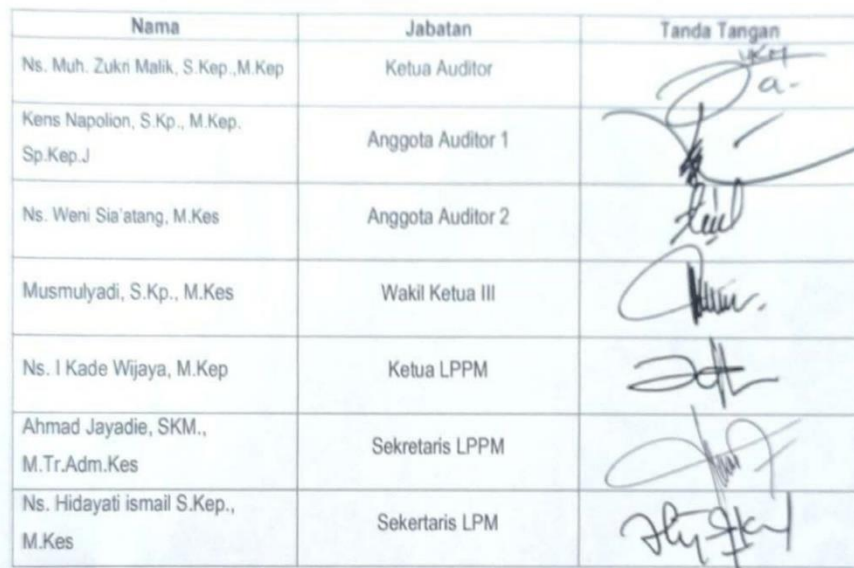 Nama Jabatan Tanda Tangan
Ns. Muh. Zukri Malik, S.Kep.,M.Kep Ketua Auditor
Kens Napolion, S.Kp., M.Kep.
Sp.Kep.J Anggota Auditor 1
Ns. Weni Sia'atang, M.Kes Anggota Auditor 2
Musmulyadi, S.Kp., M.Kes Wakil Ketua III
Ns. I Kade Wijaya, M.Kep Ketua LPPM
Ahmad Jayadie, SKM.,
M.Tr.Adm.Kes Sekretaris LPPM
Ns. Hidayati ismail S.Kep.,
M.Kes Sekertaris LPM